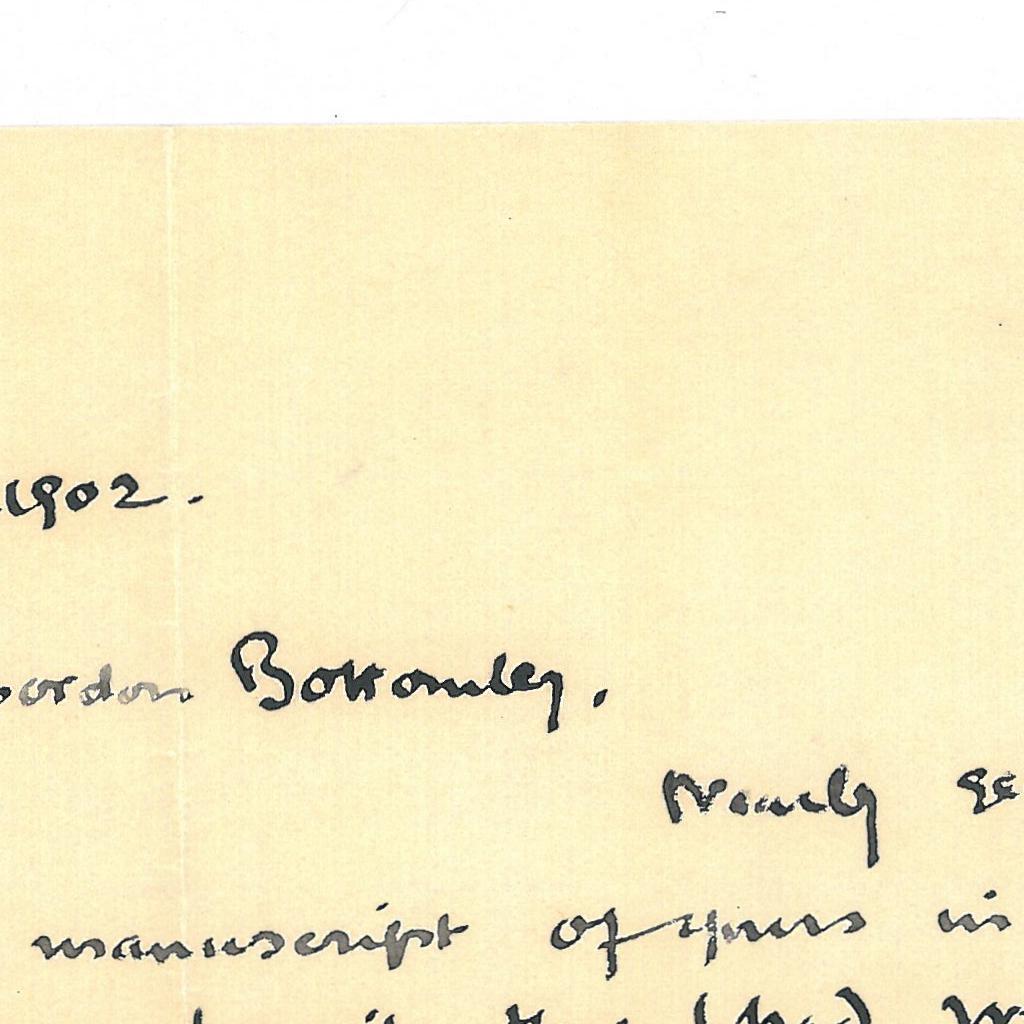 1902.
ordon Bottomley.
Nearly
manuscript of yours in